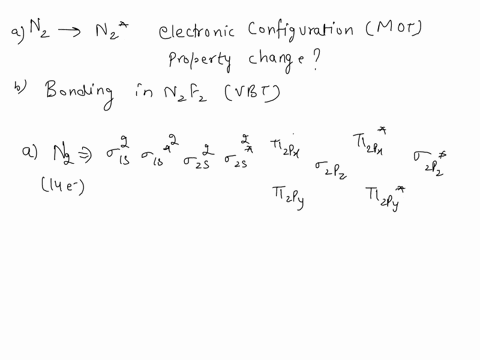 a) N₂ → N₂* electronic Configuration (MOT)
Property change?
b) Bonding in N₂F₂ (VBT)
a) N₂ ⇒ σ1s² σ1s*² σ2s² σ2s*² π2Px σ2Pz π2Px* σ2Pz*
(14e⁻) π2Py π2Py*